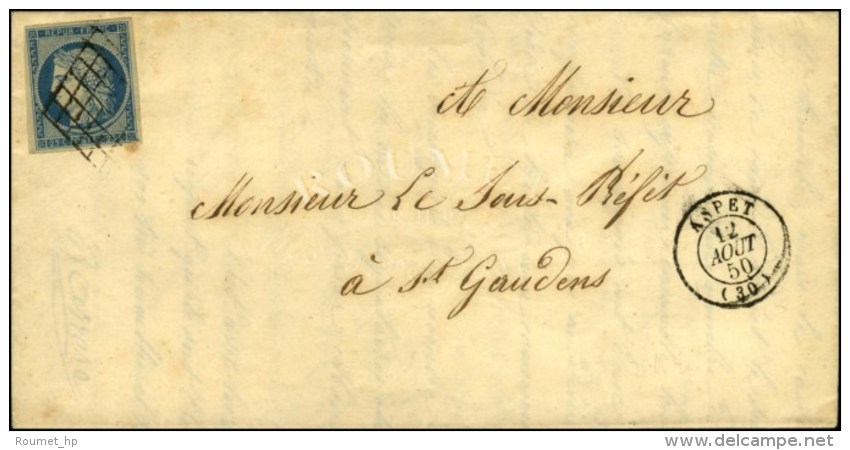 REPUB. FRANC.
25 C. 25 C.
A Monsieur
Monsieur Le Sous-Préfet
à St Gaudens
ASPET
12
AOUT
50
(30)
Roumet_hp
delcampe.net